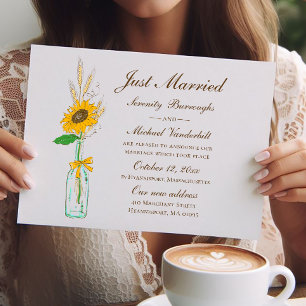 Just Married
Serenity Burroughs
—AND—
Michael Vanderbilt
are pleased to announce our
marriage which took place
October 12, 2030
in Evanspoint, Massachusetts
Our new address
410 Marchant Street
Evanspoint, MA 01985